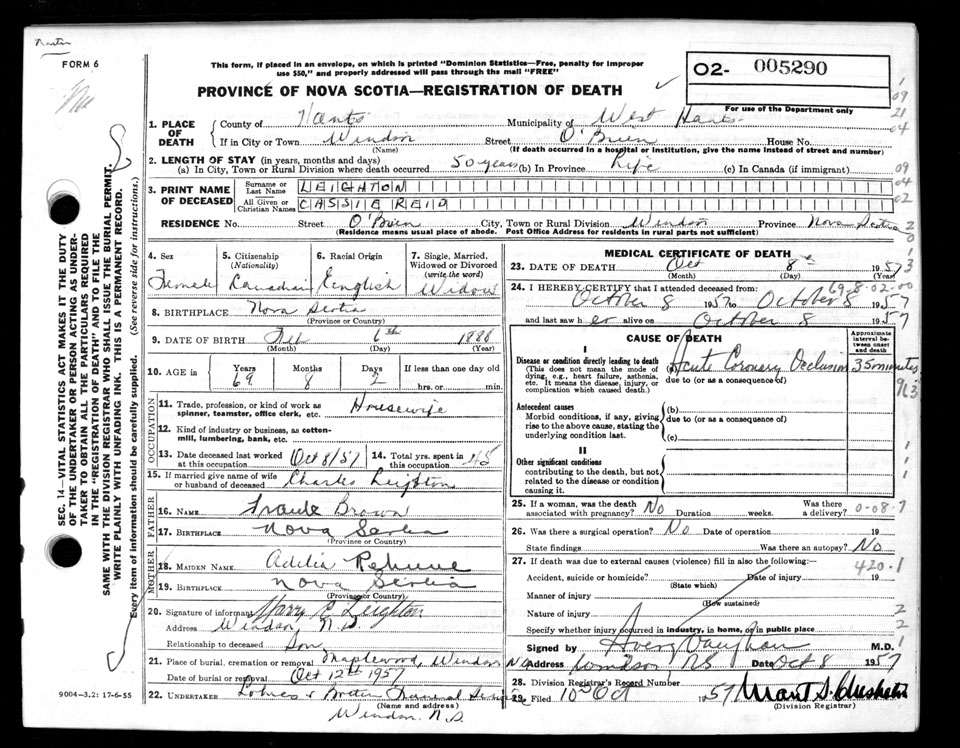 FORM 6
This form, if placed in an envelope, on which is printed "Dominion Statistics—Free, penalty for improper
use $50," and properly addressed will pass through the mail "FREE"
02- 005290
For use of the Department only
PROVINCE OF NOVA SCOTIA—REGISTRATION OF DEATH
1. PLACE OF DEATH County of Hants Municipality of West Hants
If in City or Town Windsor Street O'Brien House No.
(Name) (If death occurred in a hospital or institution, give the name instead of street and number)
2. LENGTH OF STAY (in years, months and days)
(a) In City, Town or Rural Division where death occurred 50 years (b) In Province Life (c) In Canada (if immigrant)
3. PRINT NAME OF DECEASED Surname or Last Name LEIGHTON
All Given or Christian Names CASSIE REID
RESIDENCE No. Street O'Brien City, Town or Rural Division Windsor Province Nova Scotia
(Residence means usual place of abode. Post Office Address for residents in rural parts not sufficient)
4. Sex Female
5. Citizenship (Nationality) Canadian
6. Racial Origin English
7. Single, Married, Widowed or Divorced (write the word) Widow
8. BIRTHPLACE Nova Scotia
(Province or Country)
9. DATE OF BIRTH Feb 6th 1888
(Month) (Day) (Year)
10. AGE Years 69 Months 8 Days 2 If less than one day
hrs. or min.
OCCUPATION
11. Trade, profession, or kind of work as spinner, teamster, office clerk, etc. Housewife
12. Kind of industry or business, as cotton-mill, lumbering, bank, etc.
13. Date deceased last worked at this occupation Oct 8/57
14. Total yrs. spent in this occupation 45
15. If married give name of wife or husband of deceased Charles Leighton
FATHER
16. NAME Brown
17. BIRTHPLACE Nova Scotia
(Province or Country)
MOTHER
18. MAIDEN NAME Addie
19. BIRTHPLACE Nova Scotia
(Province or Country)
20. Signature of informant Harry E Leighton
Address Windsor N.S.
Relationship to deceased Son
21. Place of burial, cremation or removal Maplewood, Windsor NS
Date of burial or removal Oct 12th 1957
22. UNDERTAKER Funeral Service
(Name and address)
Windsor N.S.
9004-3.2: 17-6-55
MEDICAL CERTIFICATE OF DEATH
23. DATE OF DEATH Oct 8th 1957
(Month) (Day) (Year)
24. I HEREBY CERTIFY that I attended deceased from: 69-8-02-00
October 8 1957 to October 8 1957
and last saw her alive on October 8 1957
CAUSE OF DEATH
Approximate interval between onset and death
I
Disease or condition directly leading to death
(This does not mean the mode of dying, e.g., heart failure, asthenia, etc. It means the disease, injury, or complication which caused death.)
(a) Acute Coronary Occlusion 35 minutes
due to (or as a consequence of)
Antecedent causes
Morbid conditions, if any, giving rise to the above cause, stating the underlying condition last.
(b)
due to (or as a consequence of)
(c)
II
Other significant conditions
contributing to the death, but not related to the disease or condition causing it.
25. If a woman, was the death associated with pregnancy? No Duration weeks. Was there a delivery? 0-08-7
26. Was there a surgical operation? No Date of operation 19
State findings Was there an autopsy? No
27. If death was due to external causes (violence) fill in also the following:— 420.1
Accident, suicide or homicide? Date of injury 19
(State which)
Manner of injury
(How sustained)
Nature of injury
Specify whether injury occurred in industry, in home, or in public place
Signed by Avery Vaughan M.D.
Address Windsor NS Date Oct 8 1957
28. Division Registrar's Record Number
29. Filed 10 Oct 1957
(Division Registrar)
SEC. 14—VITAL STATISTICS ACT MAKES IT THE DUTY
OF THE UNDERTAKER OR PERSON ACTING AS UNDER-
TAKER TO OBTAIN ALL THE PARTICULARS REQUIRED
IN THE "REGISTRATION OF DEATH" AND TO FILE THE
SAME WITH THE DIVISION REGISTRAR WHO SHALL ISSUE THE BURIAL PERMIT.
WRITE PLAINLY WITH UNFADING INK. THIS IS A PERMANENT RECORD.
Every item of information should be carefully supplied. (See reverse side for instructions.)